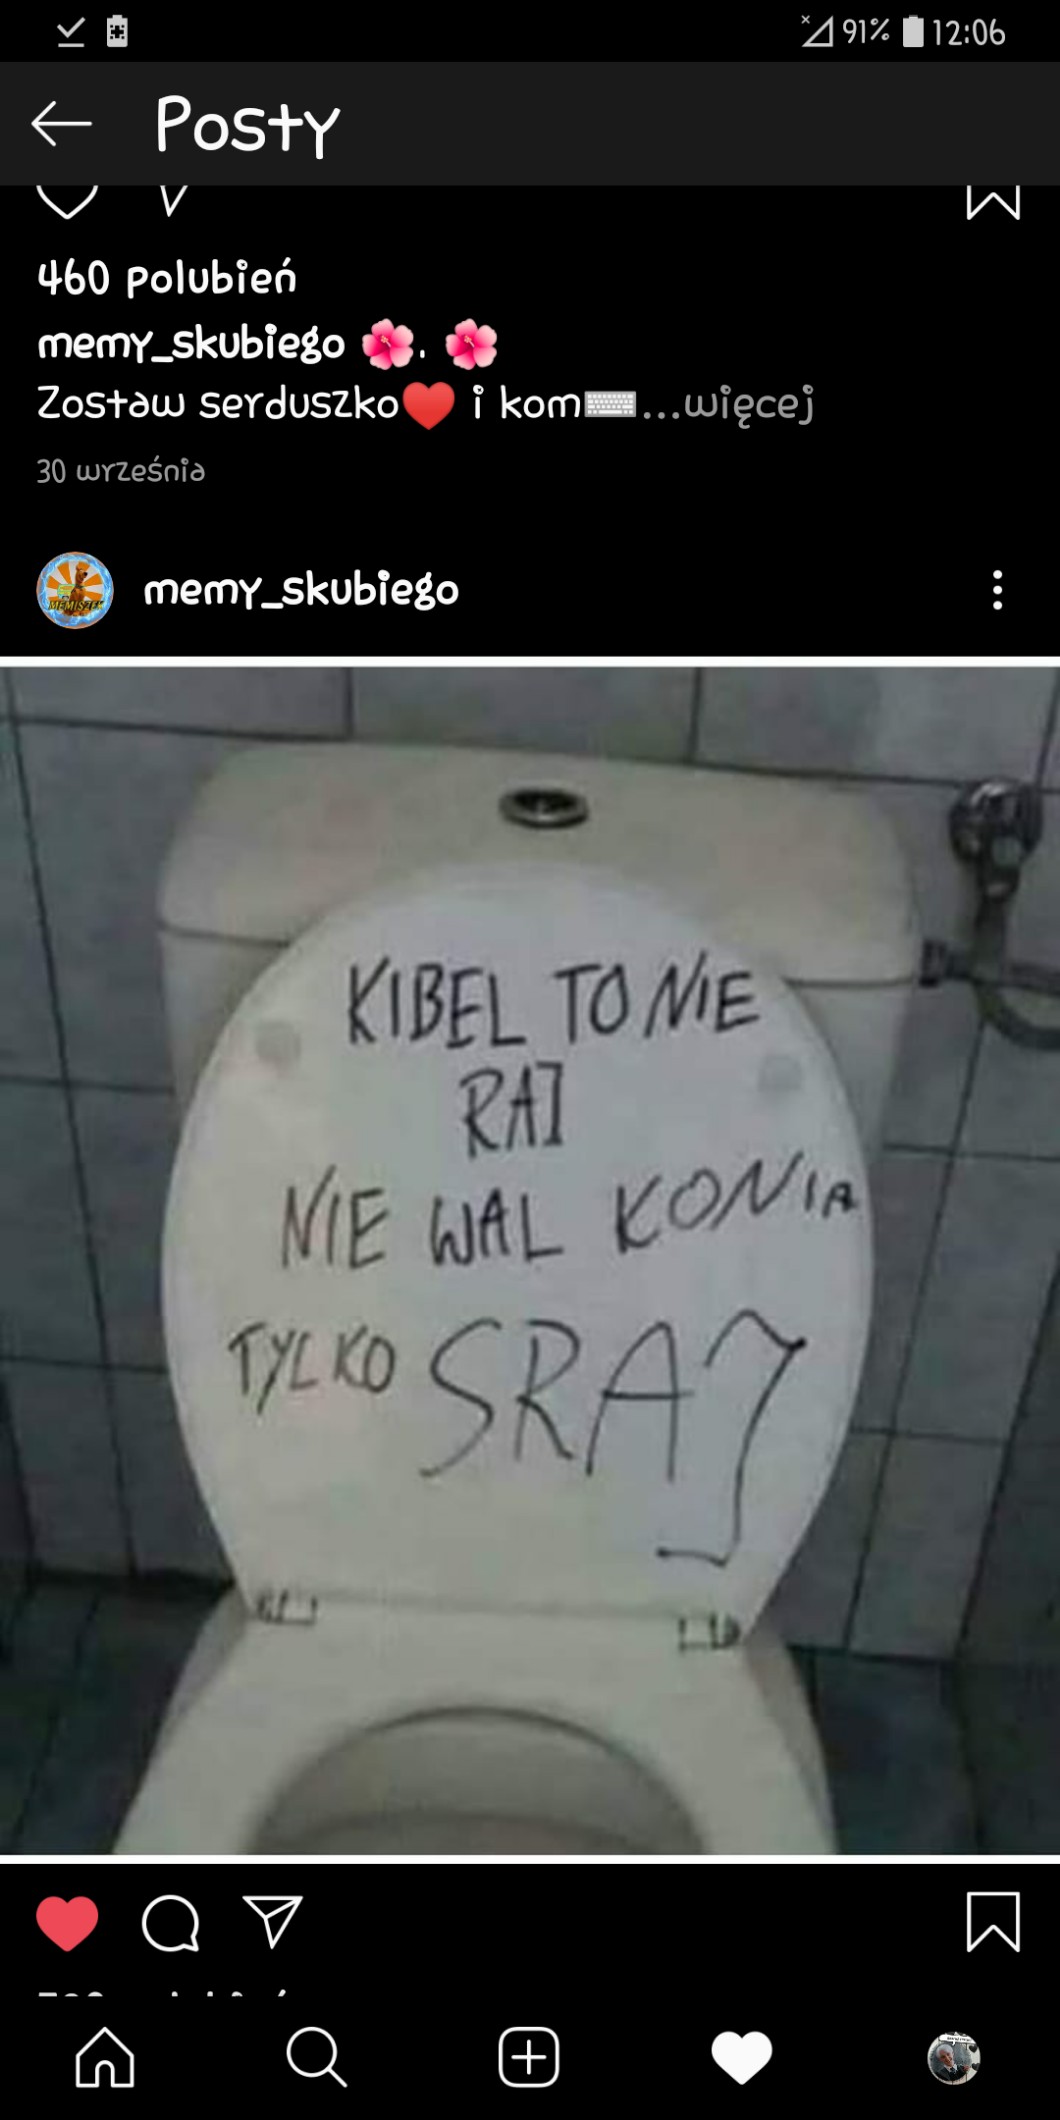 91% 12:06
Posty
460 polubień
memy_skubiego 🌺. 🌺
Zostaw serduszko❤️ i kom⌨️...więcej
30 września
memy_skubiego
MEMISZEK
KIBEL TO NIE
RAJ
NIE WAL KONIA
TYLKO SRAJ